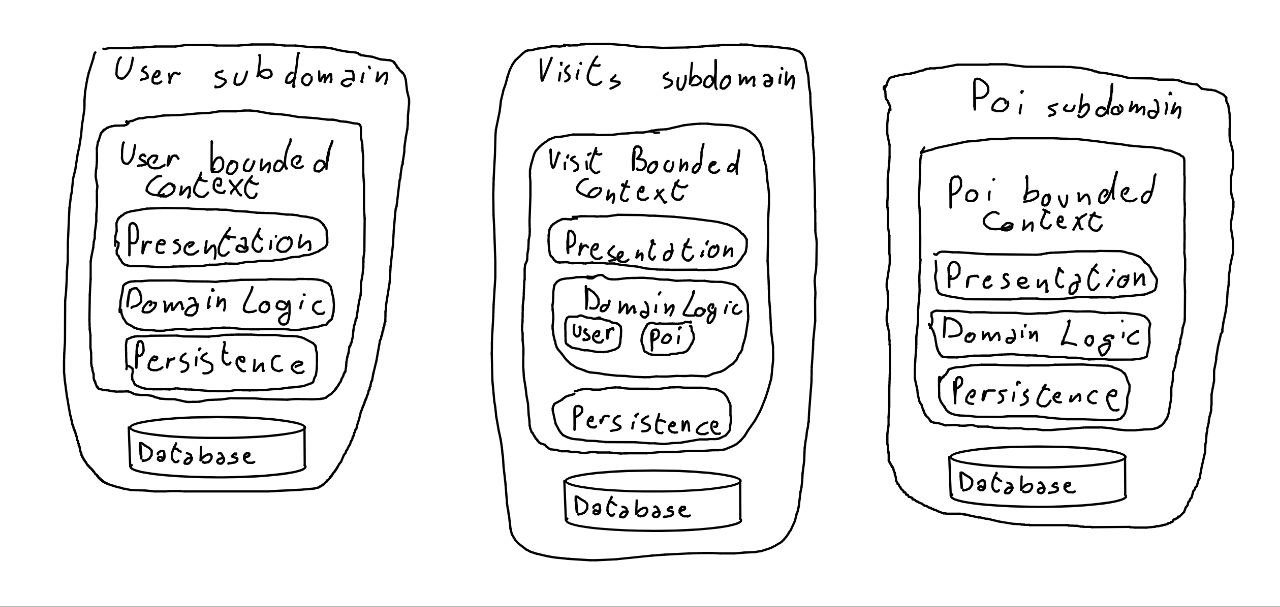 User subdomain
User bounded
context
Presentation
Domain Logic
Persistence
Database
Visits subdomain
Visit Bounded
Context
Presentation
Domain Logic
user
poi
Persistence
Database
Poi subdomain
Poi bounded
context
Presentation
Domain Logic
Persistence
Database